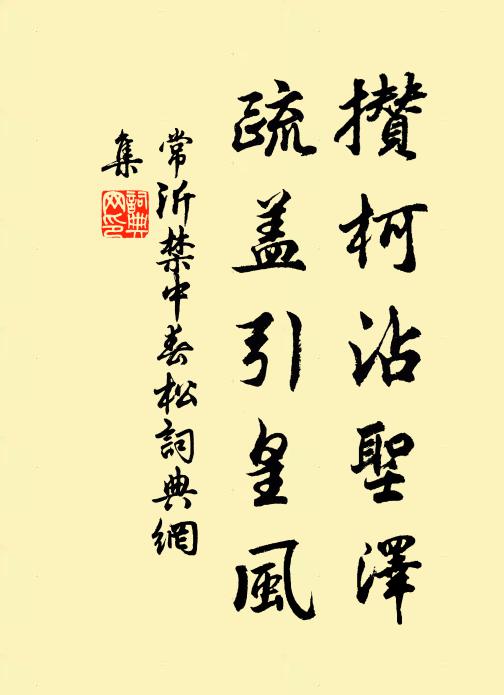 攢柯沾聖澤
疏盖引皇風
常沂禁中春松詞典網
集
詞典
网印